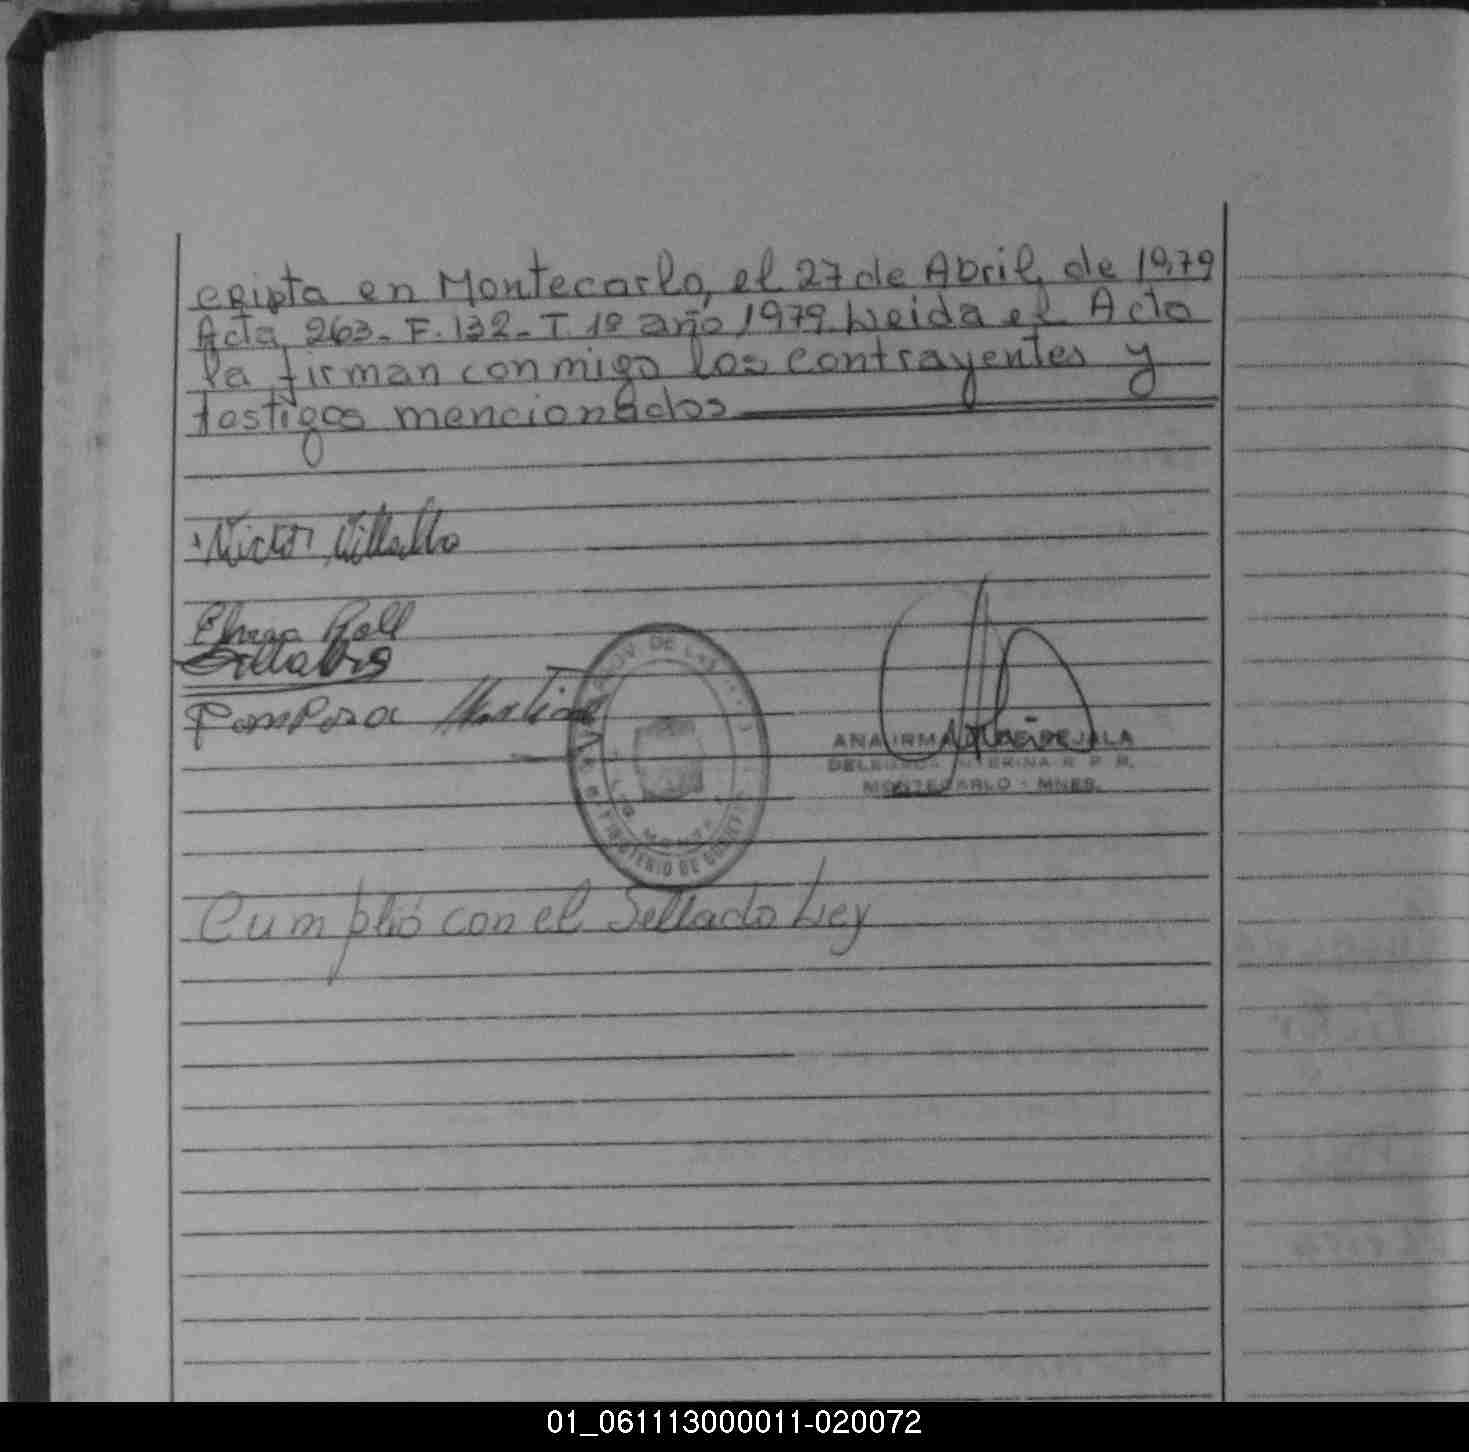 cripta en Montecarlo, el 27 de Abril, de 1979
Acta 263- F. 132- T. 1º año 1979. Leida el Acta
la firman conmigo los contrayentes y
testigos mencionados
Victor Villalba
Roll
Villalba
DE LAS
MINISTERIO DE
ANA IRMA
DELEGADA INTERINA R. P. R.
MONTECARLO - MNES.
Cumplió con el Sellado Ley
01_061113000011-020072